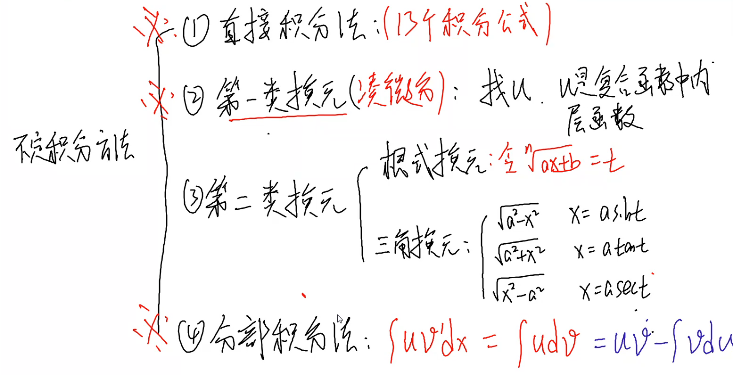 ※①直接积分法:(13个积分公式)
※②第一类换元(凑微分):找u. u是复合函数中内
层函数
不定积分方法
③第二类换元
根式换元:令 ⁿ√(ax+b) = t
三角换元:
√(a²-x²) x=asint
√(a²+x²) x=atant
√(x²-a²) x=asect
※④分部积分法:∫uv'dx = ∫udv = uv-∫vdu